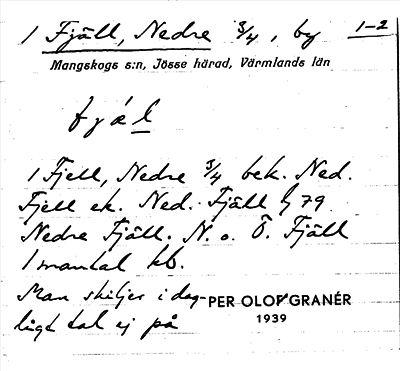 1 Fjäll, Nedre 3/4, by 1–2
Mangskogs s:n, Jösse härad, Värmlands län
fjál
1 Fjell, Nedre 3/4 bek. Ned.
Fjell ek. Ned. Fjäll 79
Nedre Fjäll. N. o. Ö. Fjäll
1 mantal kb.
Man skiljer i dag-
ligt tal ej på
PER OLOF GRANÉR
1939